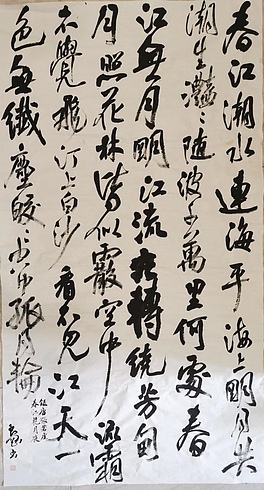 春江潮水連海平海上明月共
潮生灩〻随波千萬里何處春
江無月明江流宛轉繞芳甸
月照花林皆似霰空中流霜
不覺飛汀上白沙看不見江天一
色無纖塵皎〻空中孤月輪
張若虛
春江花月夜
書